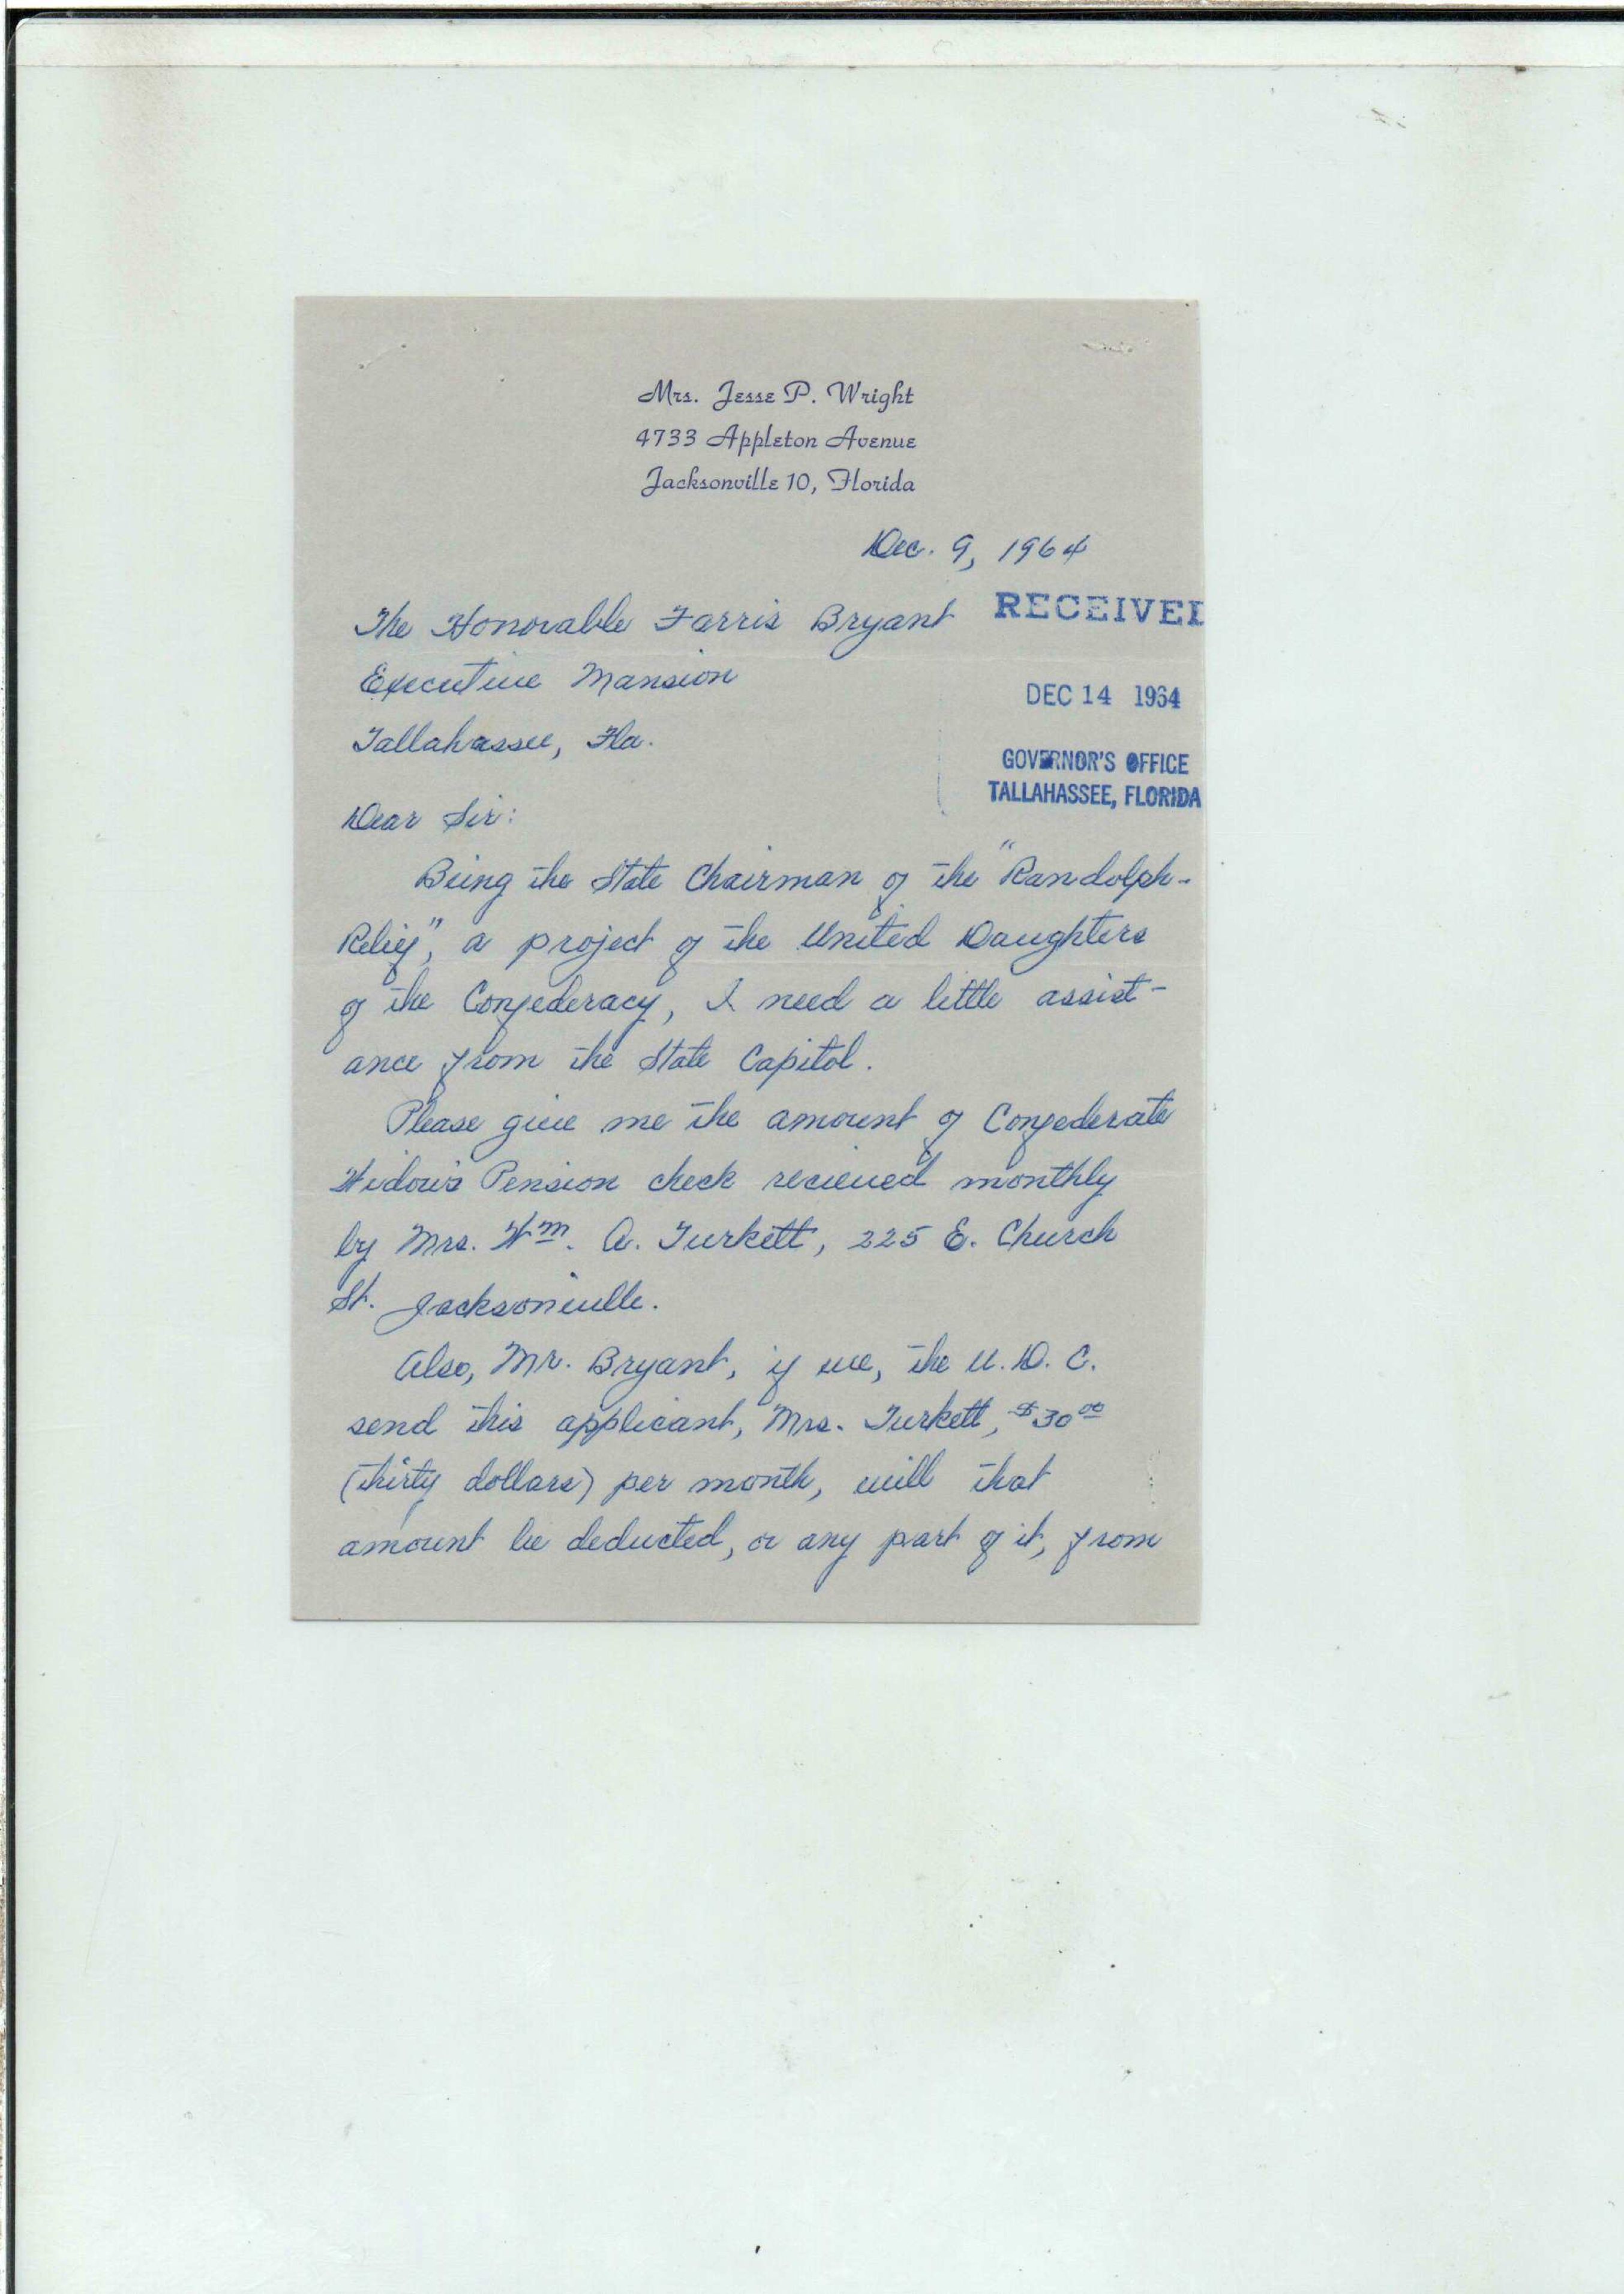 Mrs. Jesse P. Wright
4733 Appleton Avenue
Jacksonville 10, Florida
Dec. 9, 1964
The Honorable Farris Bryant
RECEIVED
Executive Mansion
DEC 14 1964
Tallahassee, Fla.
GOVERNOR'S OFFICE
TALLAHASSEE, FLORIDA
Dear Sir:
Being the State Chairman of the "Randolph-
Relief", a project of the United Daughters
of the Confederacy, I need a little assist-
ance from the State Capitol.
Please give me the amount of Confederate
Widow's Pension check recieved monthly
by Mrs. Wm. A. Turkett, 225 E. Church
St. Jacksonville.
Also, Mr. Bryant, if we, the U.D.C.
send this applicant, Mrs. Turkett, $30.00
(thirty dollars) per month, will that
amount be deducted, or any part of it, from